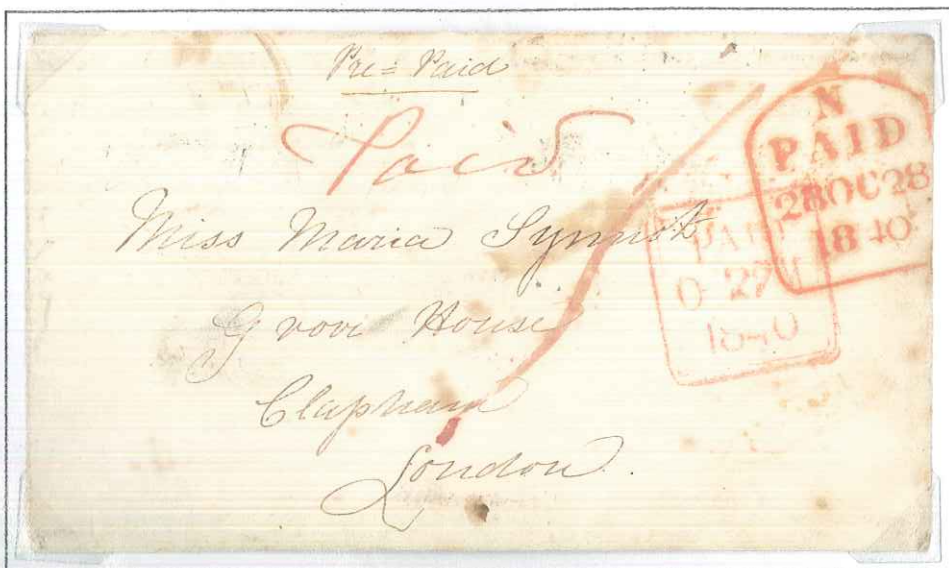 Pre=Paid
Paid
1
Miss Maria Synnot
Grove House
Clapham
London.
N
PAID
28OC28
1840
PAID
1840